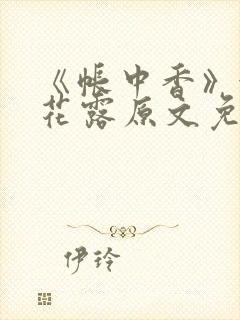 《帐中香》
花露原文免
伊玲